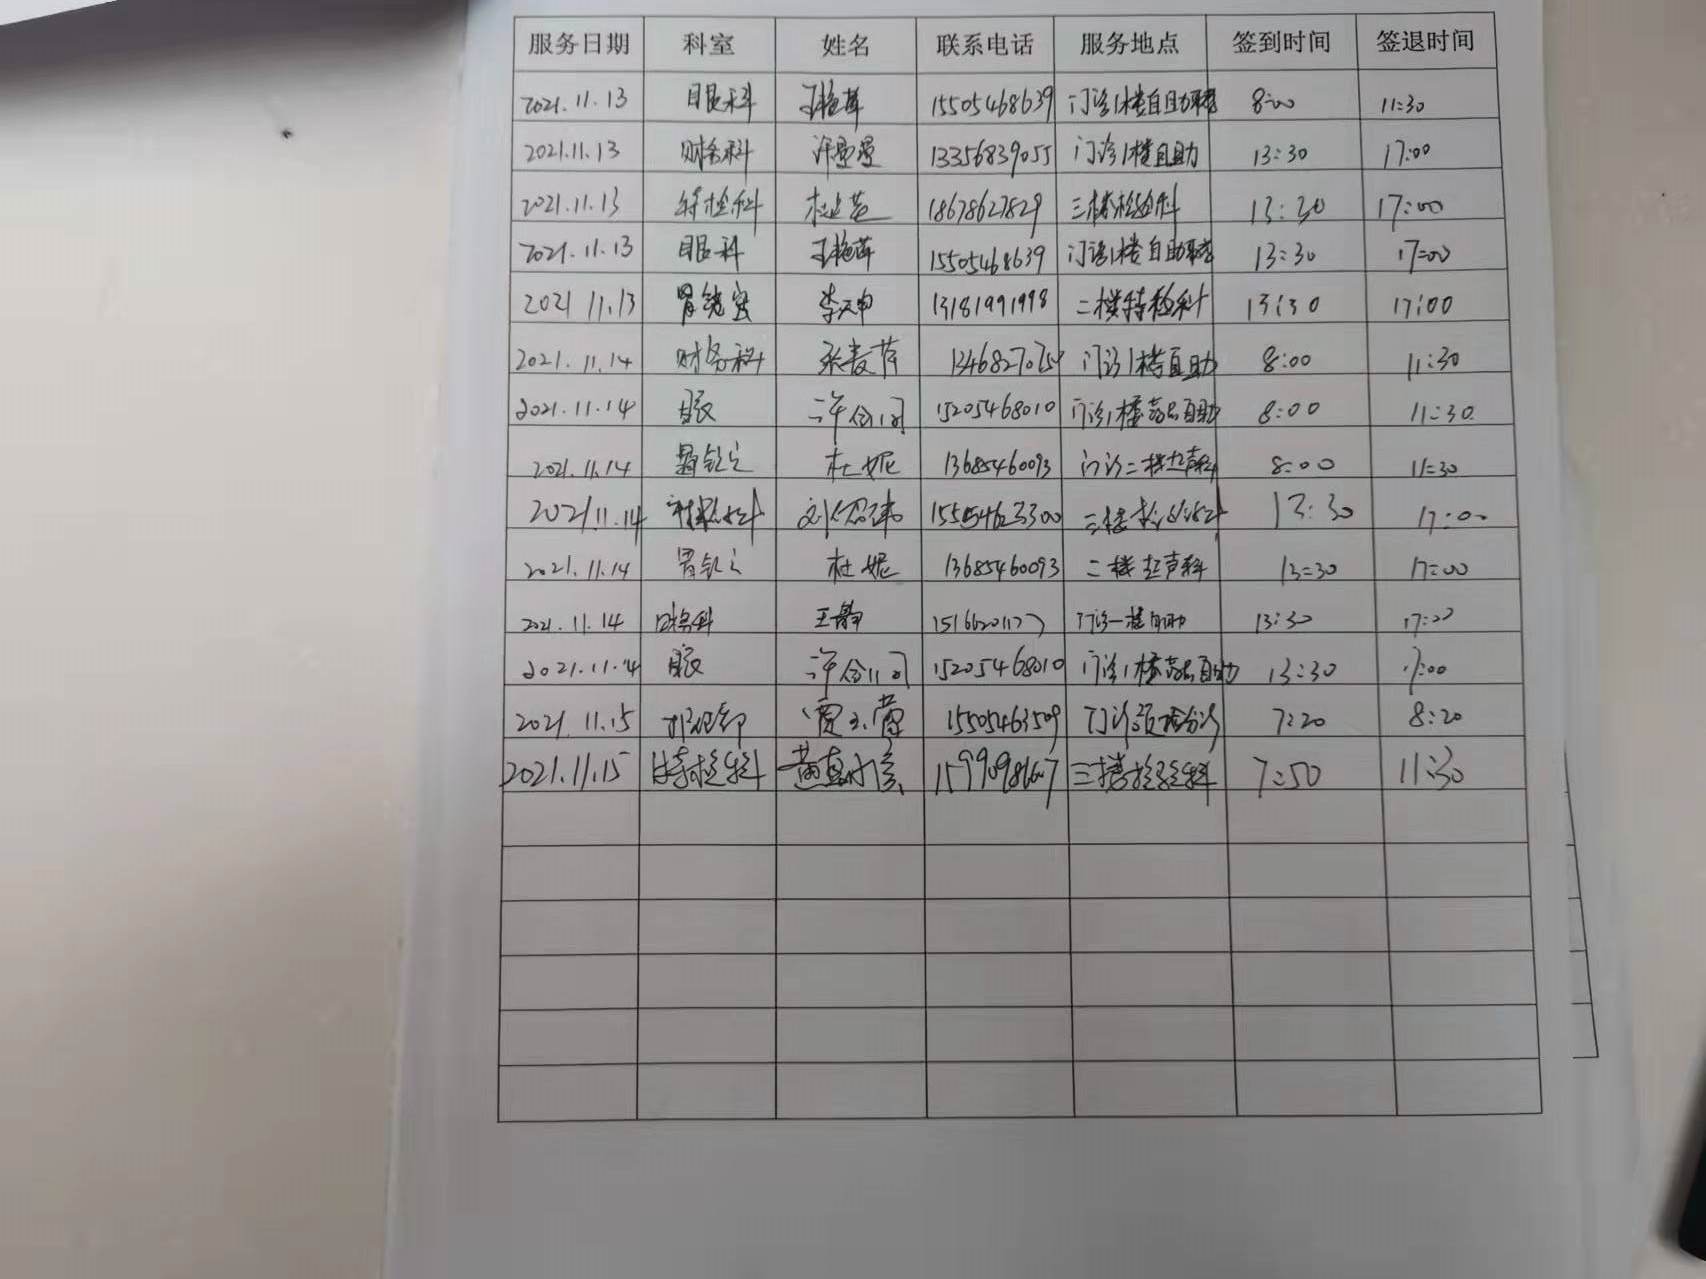 服务日期 科室 姓名 联系电话 服务地点 签到时间 签退时间
2021.11.13 眼科 王艳萍 15505468639 门诊1楼自助 8:00 11:30
2021.11.13 财务科 许曼曼 13356839055 门诊1楼自助 13:30 17:00
2021.11.13 特检科 18678627829 三楼检验科 13:30 17:00
2021.11.13 眼科 王艳萍 15505468639 门诊1楼自助 13:30 17:00
2021 11.13 胃镜室 李天申 13181991998 二楼特检科 13:30 17:00
2021.11.14 财务科 门诊1楼自助 8:00 11:30
2021.11.14 眼 许合川 15205468010 门诊1楼药品自助 8:00 11:30
2021.11.14 杜妮 13685460093 门诊二楼超声科 8:00 11:30
2021.11.14 13:30 17:00
2021.11.14 杜妮 13685460093 二楼超声科 13:30 17:00
2021.11.14 王静 门诊一楼自助 13:30 17:00
2021.11.14 眼 许合川 15205468010 门诊1楼药品自助 13:30 17:00
2021.11.15 15505463509 门诊预检分诊 7:20 8:20
2021.11.15 特检科 三楼检验科 7:50 11:30